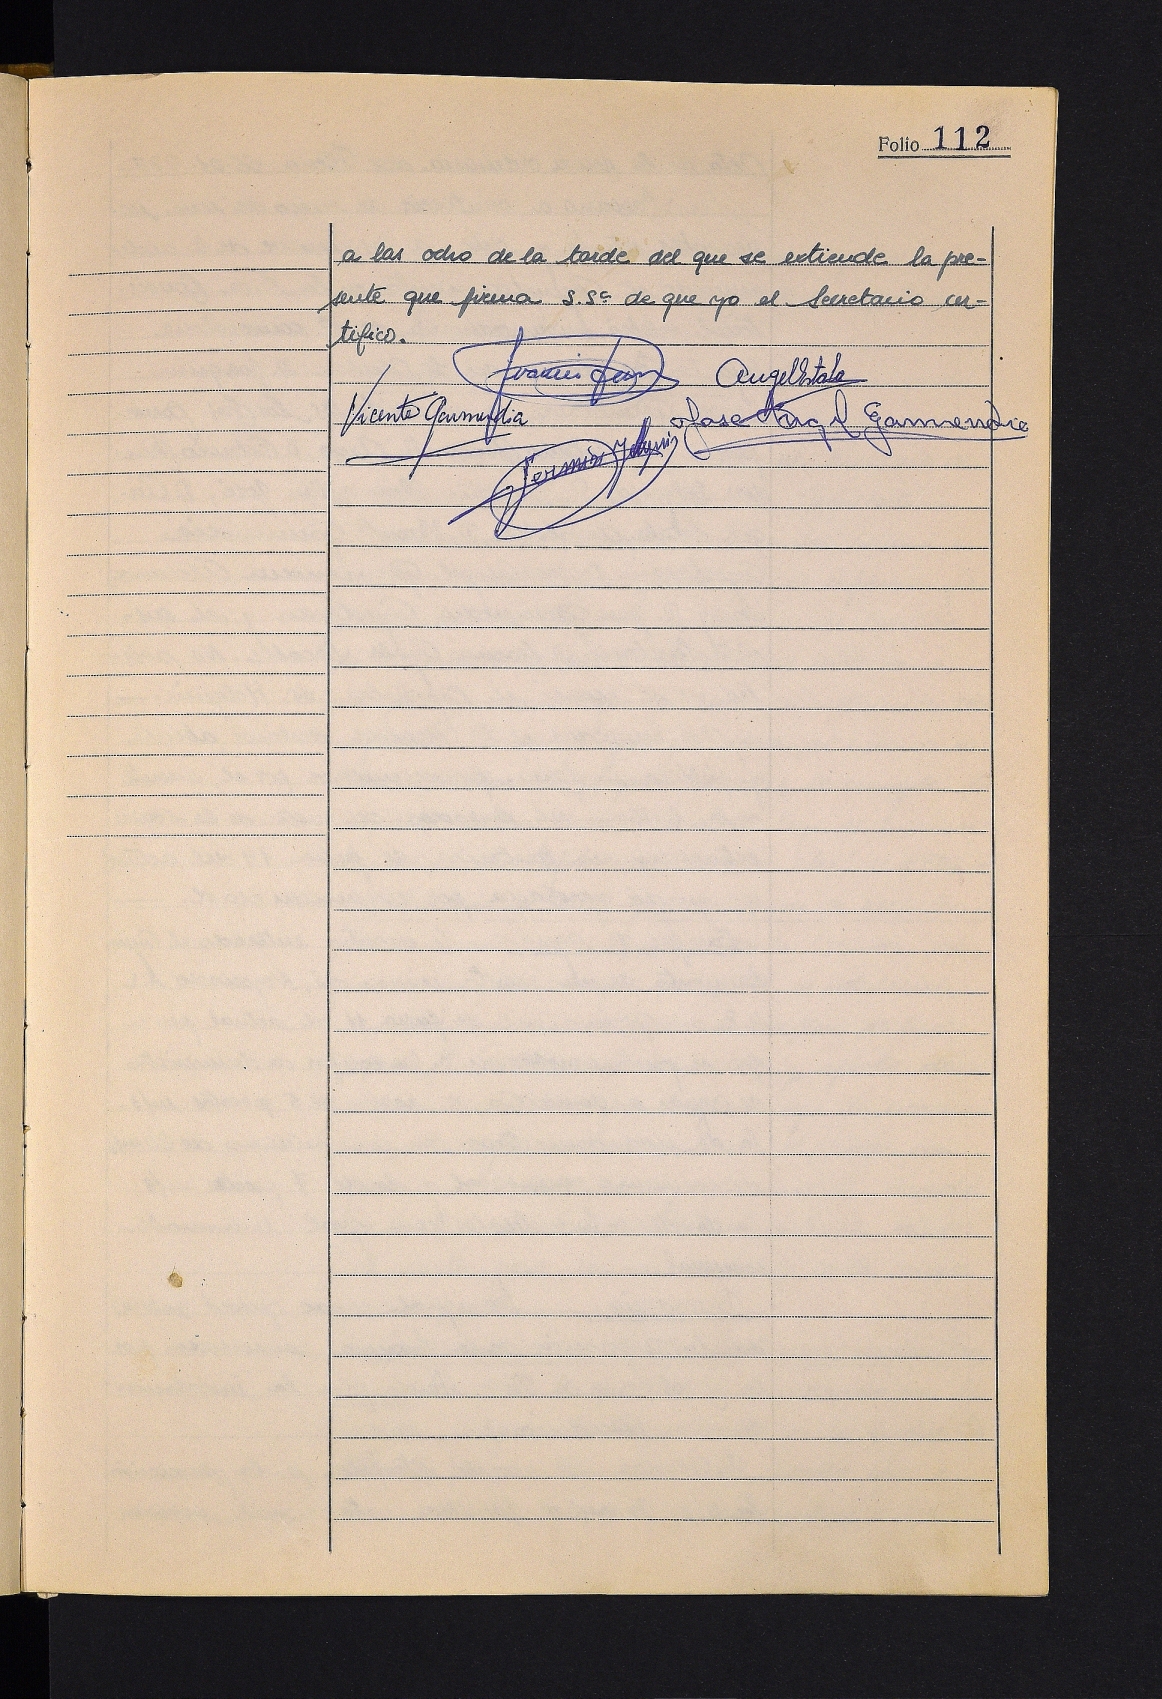 Folio 112
a las ocho de la tarde del que se extiende la pre-
sente que firma S.Sª de que yo el Secretario cer-
tifico.
Vicente Garmendia
Jose Angel Garmendia
Fermín